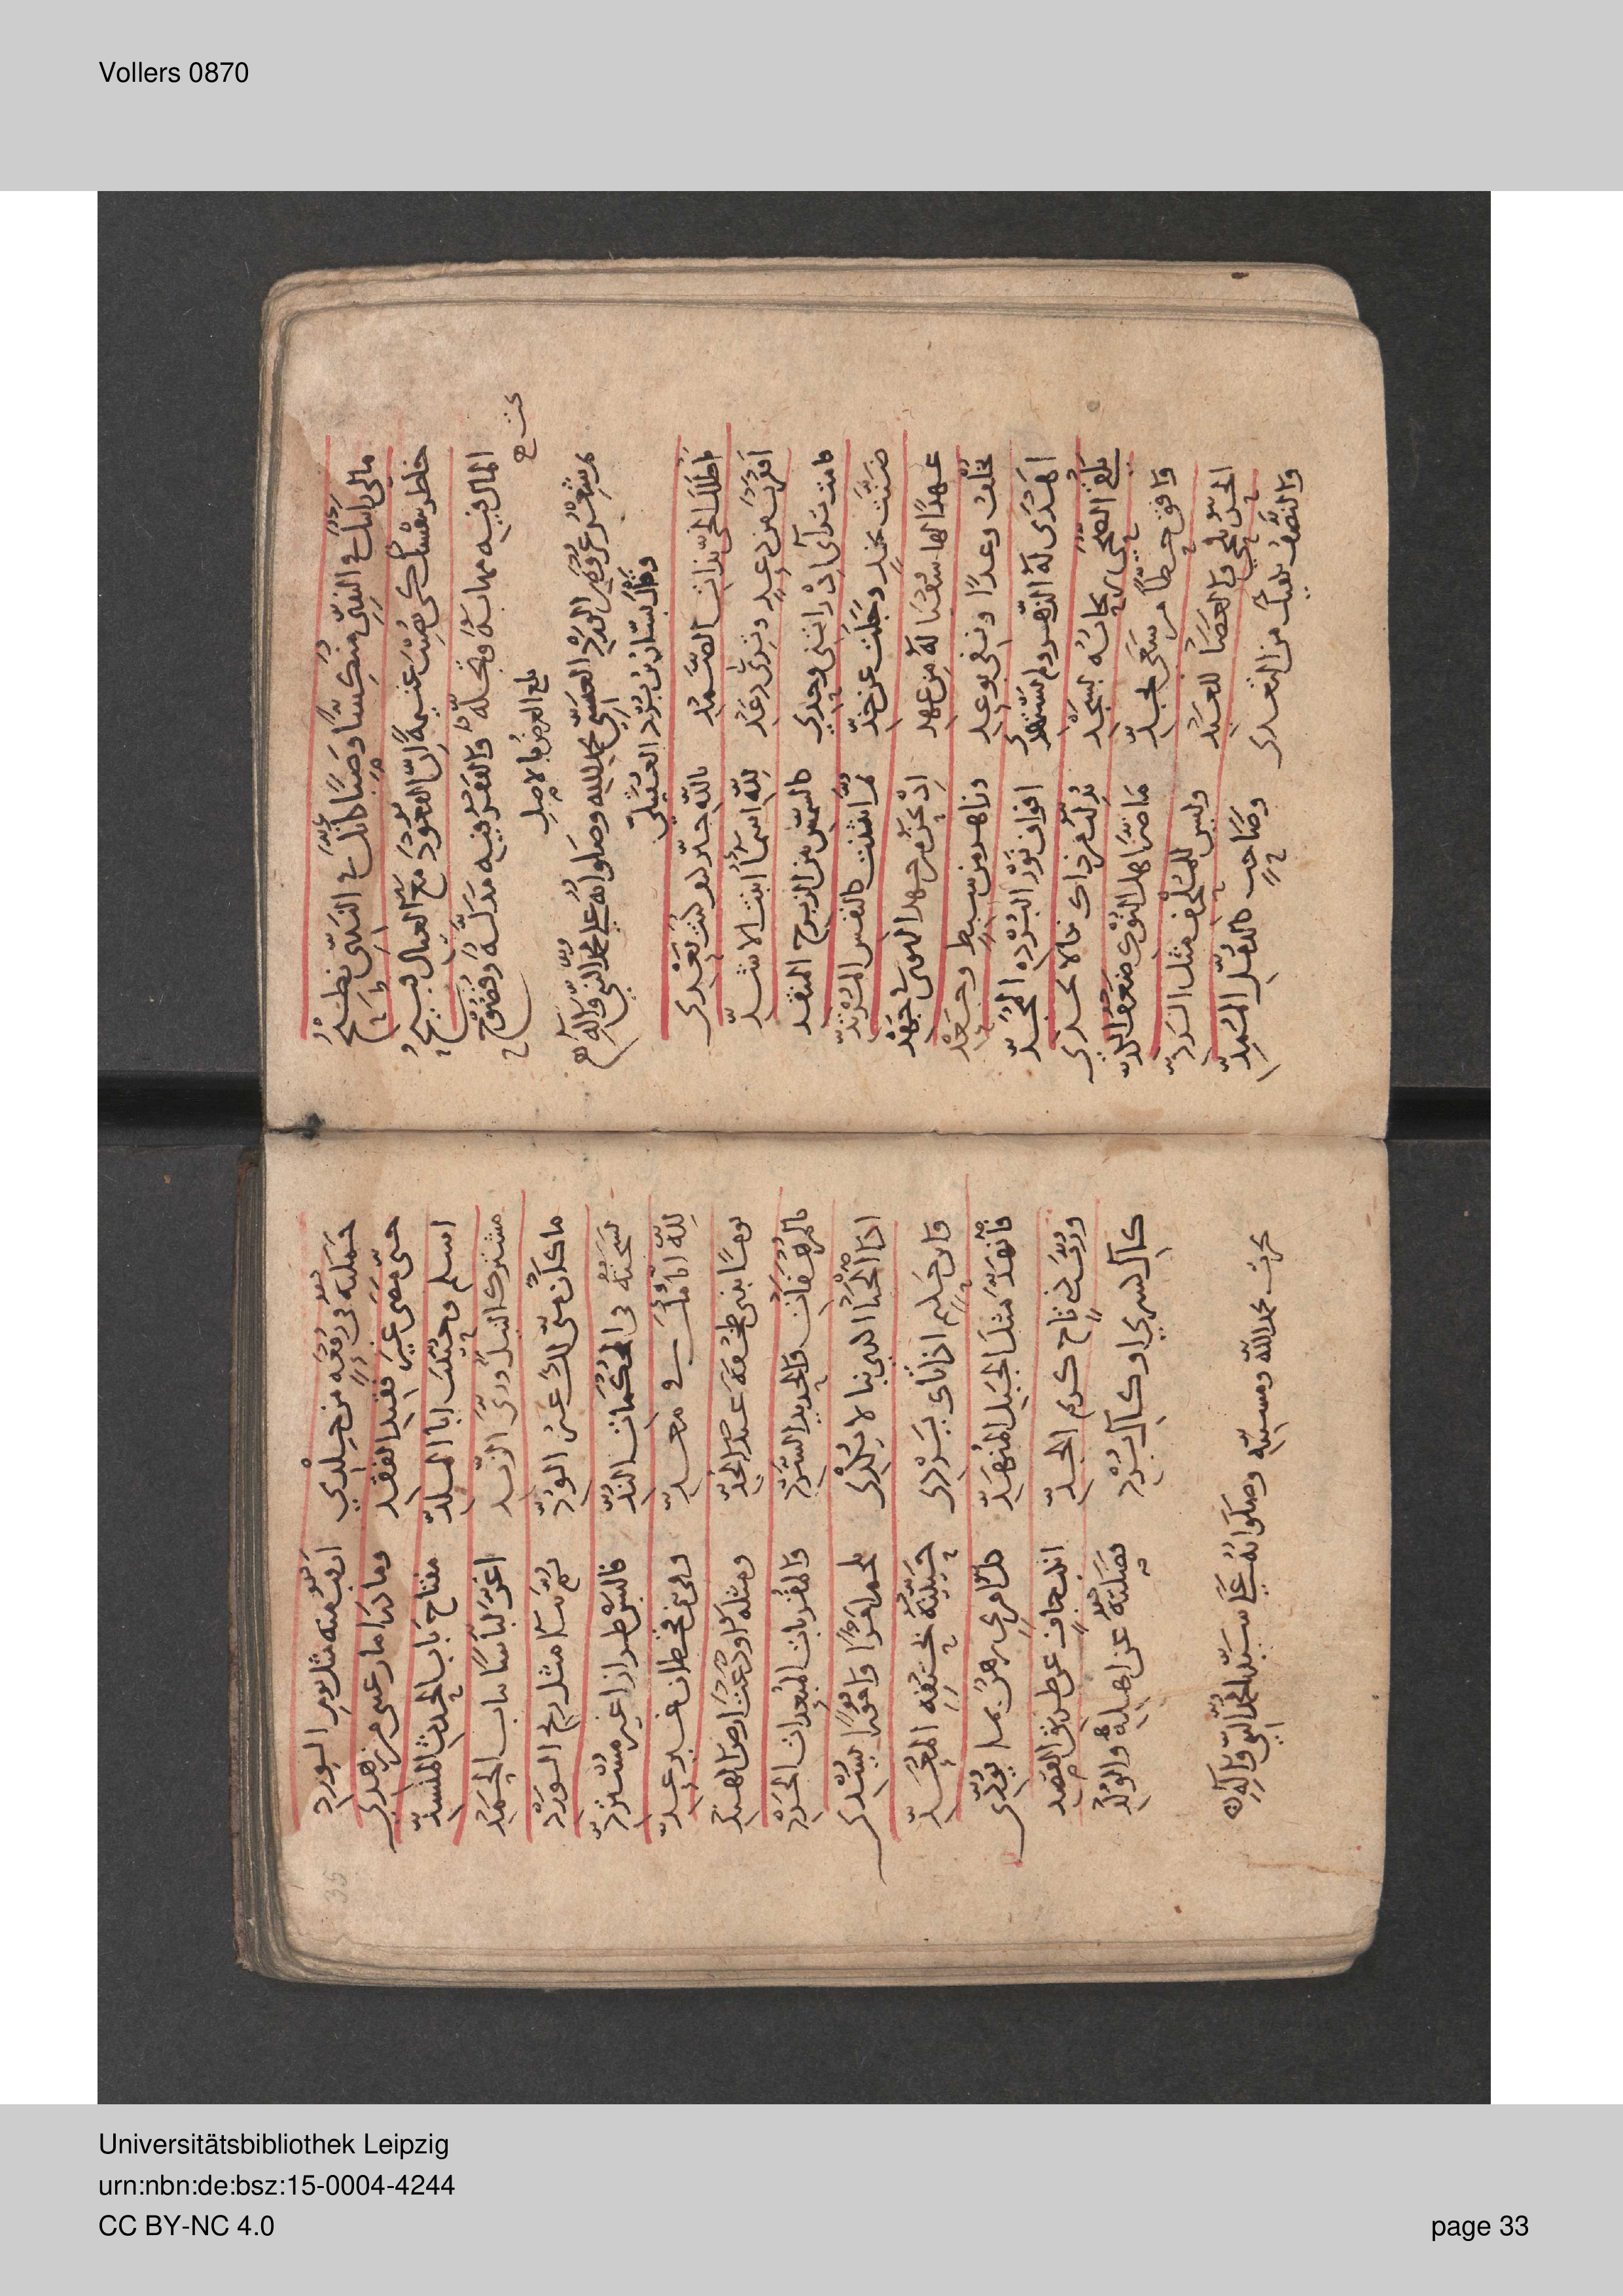 Vollers 0870
مالي رايتك في الندي منكسا وصبا كانك في الندي نطيح
خاطر بنفسك كي تصيب غنيمة ان القعود مع العيال قبيح
المال فيه مهابة وتجلة والفقر فيه مذلة وفضوح
بلغ العرض بالاصل
شعر عروة بن الورد العبسي بحمد الله وصلواته على محمد النبي وآله
وقال بشار بن برد العقيلي
يا طلل الحي بذات الصمد بالله خبر كيف كنت بعدي
اقفرت من دعد وترب دعد لله اسماء ابنت الاشد
قامت تراآى اذ راتني وحدي كالشمس بين الزبرج المنقد
ضنت بخد وجلت عن خد ثم انثنت كالنفس المرتد
عهدا لها سقيا له من عهد اذ نحن من جهد الهوى في جهد
تخلف وعدا ونفي بوعد وزاهر من سبط وجعد
اهدى له الدهر ولم يستهدي افواف نور البردة المجد
يلقى الضحى ريحانه بسجد بدلت من ذاك بكا لا يجدي
وافق حظا من سعى بجد ما ضر اهل النوك ضعف الكد
الحر يلحى والعصا للعبد وليس للملحف مثل الرد
والنصف يكفيك من التعدي وصاحب كالدمل الممد
35
حملته في رقعة من جلدي ارقب منه مثل يوم الورد
حتى مضى غير فقيد الفقد وما درى ما رغبتي من زهدي
اسلم وحييت ابا الملد مفتاح باب الحدث المنسد
مشترك النيل وري الزند اغر لباس ثياب الحمد
ما كان مني لك غير الود ثم ثنا مثل ريح الورد
نسجته في المحكمات الند فالبس طرازي غير مسترد
لله ايامك في معد وفي بني قحطان غير عد
يوما بذي طخفة عند الحد ومثله اودعت ارض الهند
بالمرهفات والحديد السرد والمقربات المبعدات الجرد
اذا الحيا اكدى بها لا تكدي تلحم امرا وامورا تسدي
وابن حكيم اذ اتاك يردي حييته بتحفة المعد
فانهد مثل الجبل المنهد كل امرئ رهن بما يؤدي
ورب ذي تاج كريم الجد انكب جاف عن طريق القصد
كآل كسرى او كآل برد فصلته عن اهله والولد
نجزت بحمد الله ومنه وصلواته على سيدنا محمد النبي وآله
Universitätsbibliothek Leipzig
urn:nbn:de:bsz:15-0004-4244
CC BY-NC 4.0
page 33